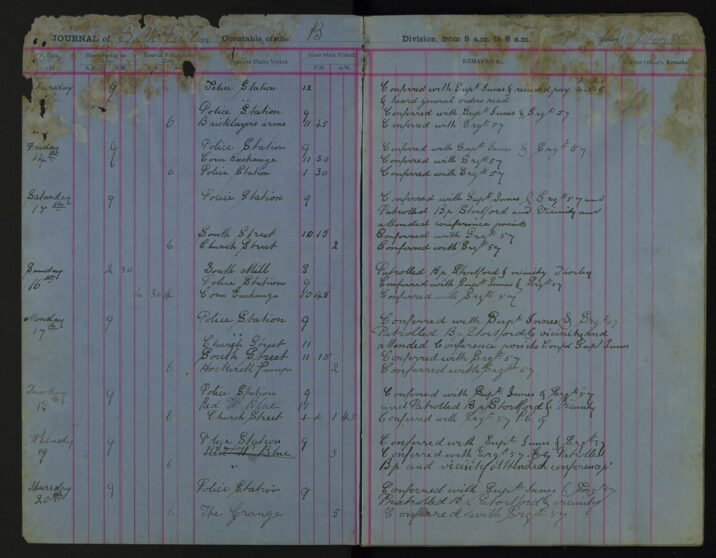 JOURNAL of Constable of the B Division, from 8 a.m. to 8 a.m.
Date. A.M. P.M. A.M. P.M. Place Visited. Hour when Visited. P.M. A.M. REMARKS, &c. Officer's Remarks.
9 Police Station 12 Conferred with Supt Innes & received pay
& heard general orders read
Police Station 9 Conferred with Supt Innes & Srgt 57
6 Bricklayers arms 11 45 Conferred with Srgt 57
Friday 9 Police Station 9 Conferred with Supt Innes & Srgt 57
14th Corn Exchange 11 30 Conferred with Srgt 57
6 Police Station 1 30 Conferred with Srgt 57
Saturday 9 Police Station 9 Conferred with Supt Innes & Srgt 57 and
15th Patrolled Bp Stortford and Vicinity and
attended conference points
South Street 10 15 Conferred with Srgt 57
6 Church Street 2 Conferred with Srgt 57
Sunday 2 30 South Mill 3 Patrolled Bp Stortford & vicinity Thorley
16th Police Station 9 Conferred with Supt Innes & Srgt 57
Corn Exchange 10 45 Conferred with Srgt 57
Monday 9 Police Station 9 Conferred with Supt Innes & Srgt 57
17th Patrolled Bp Stortford & vicinity and
Church Street 11 attended Conference points Confd Supt Innes
South Street 11 15 Conferred with Srgt 57
6 Hockerill Pump 2 Conferred with Srgt 57
Tuesday 9 Police Station 9 Conferred with Supt Innes & Srgt 57
18th Red W Blue 11 and Patrolled Bp Stortford & Vicinity
6 Church Street 1 45 Conferred with Srgt 57 P.C. 9
Wednesday 9 Police Station 9 Conferred with Supt Innes & Srgt 57
19 Red W Blue 3 Conferred with Srgt 57 Patrolled
6 Bp and vicinity attended conference
Thursday 9 Police Station 9 Conferred with Supt Innes & Srgt 57
20th Patrolled Bp Stortford & vicinity
6 The Grange 5 Conferred with Srgt 57